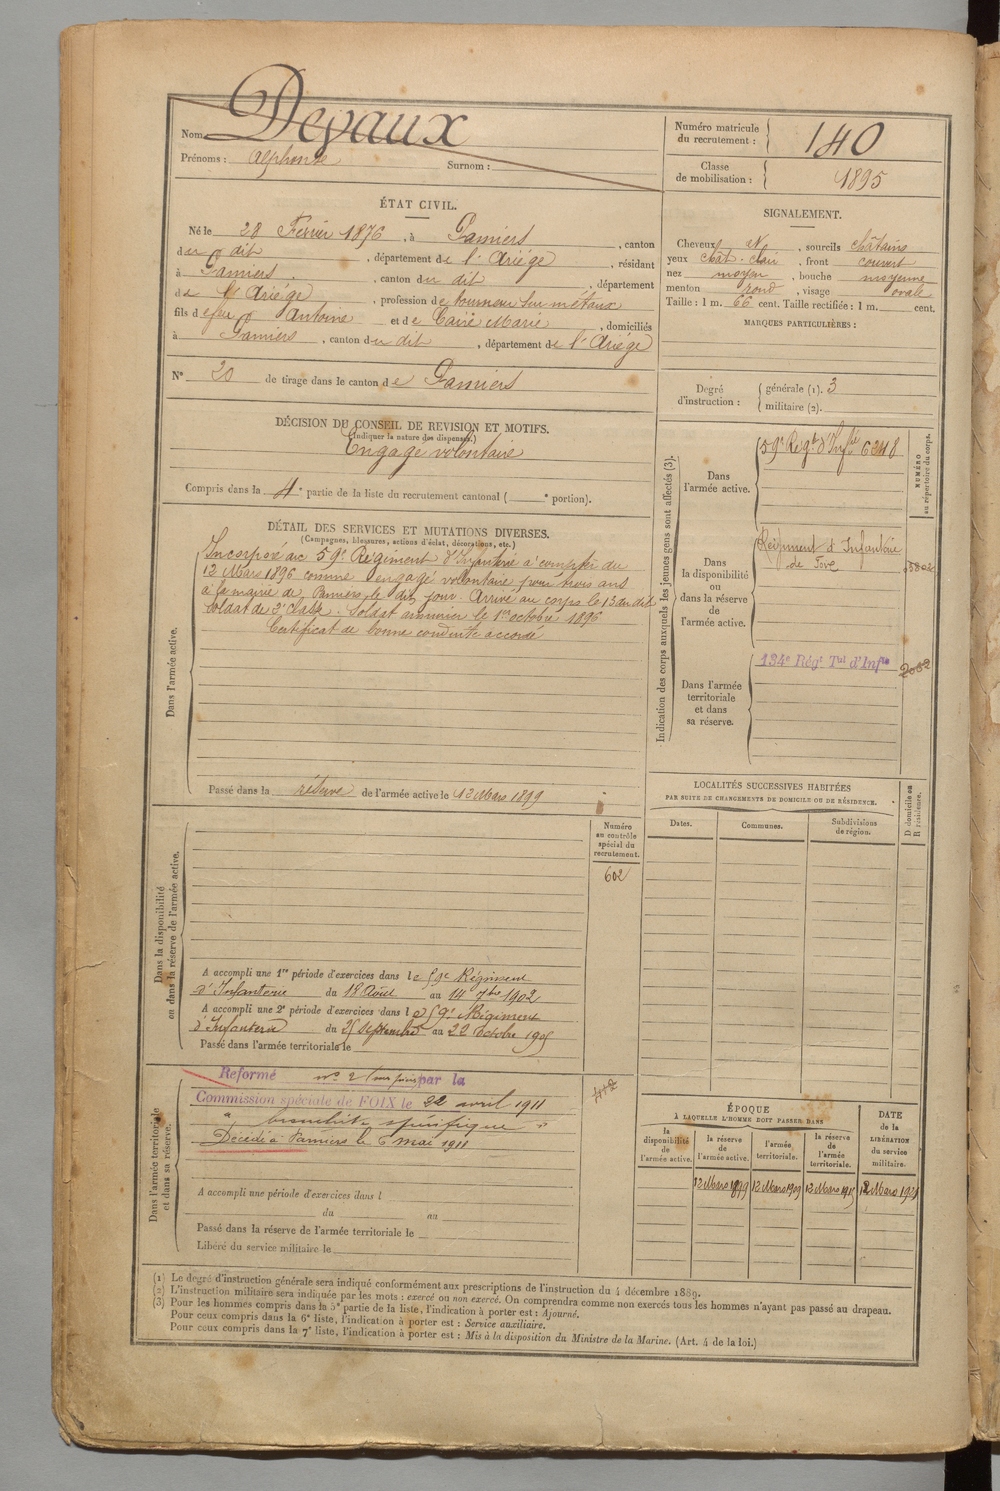 Nom Devaux
Prénoms : Alphonse Surnom :
Numéro matricule du recrutement : 140
Classe de mobilisation : 1895
ÉTAT CIVIL.
Né le 28 Février 1876, à Pamiers, canton
du dit, département de l'Ariège, résidant
à Pamiers, canton du dit, département
de l'Ariège, profession de tourneur sur métaux
fils de feu Antoine et de Marie, domiciliés
à Pamiers, canton du dit, département de l'Ariège
N° 20 de tirage dans le canton de Pamiers
SIGNALEMENT.
Cheveux et, sourcils châtains
yeux chat. clair, front couvert
nez moyen, bouche moyenne
menton rond, visage ovale
Taille : 1 m. 66 cent. Taille rectifiée : 1 m. cent.
MARQUES PARTICULIÈRES :
Degré d'instruction : générale (1). 3
militaire (2).
DÉCISION DU CONSEIL DE REVISION ET MOTIFS.
(Indiquer la nature des dispenses.)
Engagé volontaire
Compris dans la 4e partie de la liste du recrutement cantonal ( e portion).
DÉTAIL DES SERVICES ET MUTATIONS DIVERSES.
(Campagnes, blessures, actions d'éclat, décorations, etc.)
Dans l'armée active.
Incorporé au 59e Régiment d'Infanterie à compter du
12 Mars 1896 comme engagé volontaire pour trois ans
à la mairie de Pamiers le dit jour. Arrivé au corps le 13 du dit
Soldat de 2e classe. Soldat armurier le 1er octobre 1896
Certificat de bonne conduite accordé
Passé dans la réserve de l'armée active le 12 Mars 1899
Indication des corps auxquels les jeunes gens sont affectés (3).
NUMÉRO au répertoire du corps.
Dans l'armée active.
59e Régt d'Infie 6248
Dans la disponibilité ou dans la réserve de l'armée active.
Régiment d'Infanterie
de Foix
Dans l'armée territoriale et dans sa réserve.
134e Régt Tal d'Infie
LOCALITÉS SUCCESSIVES HABITÉES
PAR SUITE DE CHANGEMENTS DE DOMICILE OU DE RÉSIDENCE.
Dates. Communes. Subdivisions de région. D domicile ou R résidence.
Dans la disponibilité ou dans la réserve de l'armée active.
Numéro au contrôle spécial du recrutement.
602
A accompli une 1re période d'exercices dans le 59e Régiment
d'Infanterie du 18 Août au 14 7bre 1902
A accompli une 2e période d'exercices dans le 59e Régiment
d'Infanterie du 25 septembre au 22 octobre 1905
Passé dans l'armée territoriale le
Dans l'armée territoriale et dans sa réserve.
Réformé n° 2 par la
Commission spéciale de FOIX le 22 avril 1911
" bronchite spécifique "
Décédé à Pamiers le 6 mai 1911
A accompli une période d'exercices dans l
du au
Passé dans la réserve de l'armée territoriale le
Libéré du service militaire le
ÉPOQUE
À LAQUELLE L'HOMME DOIT PASSER DANS
la disponibilité de l'armée active.
la réserve de l'armée active.
l'armée territoriale.
la réserve de l'armée territoriale.
DATE de la LIBÉRATION du service militaire.
12 Mars 1899 12 Mars 1909 12 Mars 1915 12 Mars 1921
(1) Le degré d'instruction générale sera indiqué conformément aux prescriptions de l'instruction du 4 décembre 1889.
(2) L'instruction militaire sera indiquée par les mots : exercé ou non exercé. On comprendra comme non exercés tous les hommes n'ayant pas passé au drapeau.
(3) Pour les hommes compris dans la 5e partie de la liste, l'indication à porter est : Ajourné.
Pour ceux compris dans la 6e liste, l'indication à porter est : Service auxiliaire.
Pour ceux compris dans la 7e liste, l'indication à porter est : Mis à la disposition du Ministre de la Marine. (Art. 4 de la loi.)